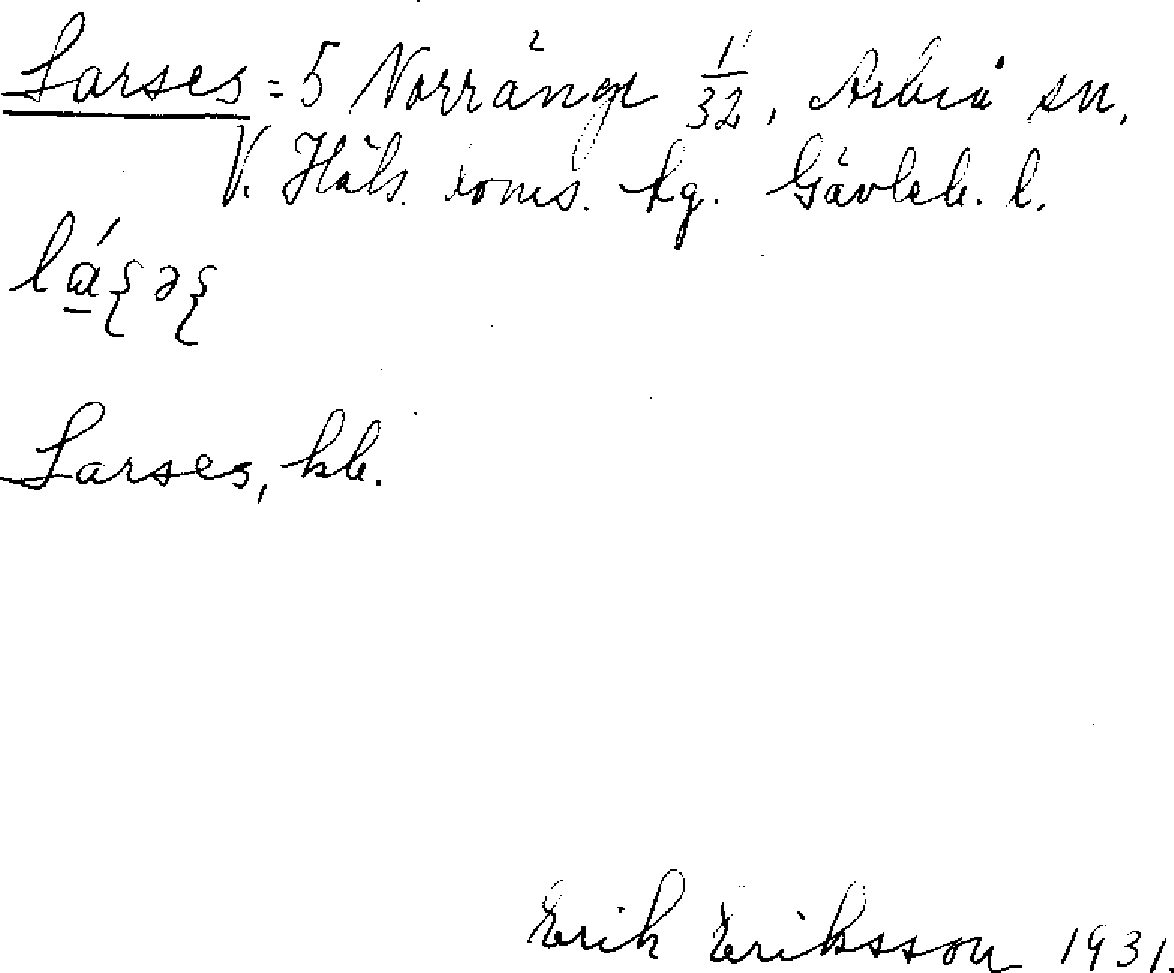 Larses = 5 Norränge 1/32, Arbrå sn.
V. Häls. doms. hg. Gävleb. l.
Larses, kk.
Erik Eriksson 1931.